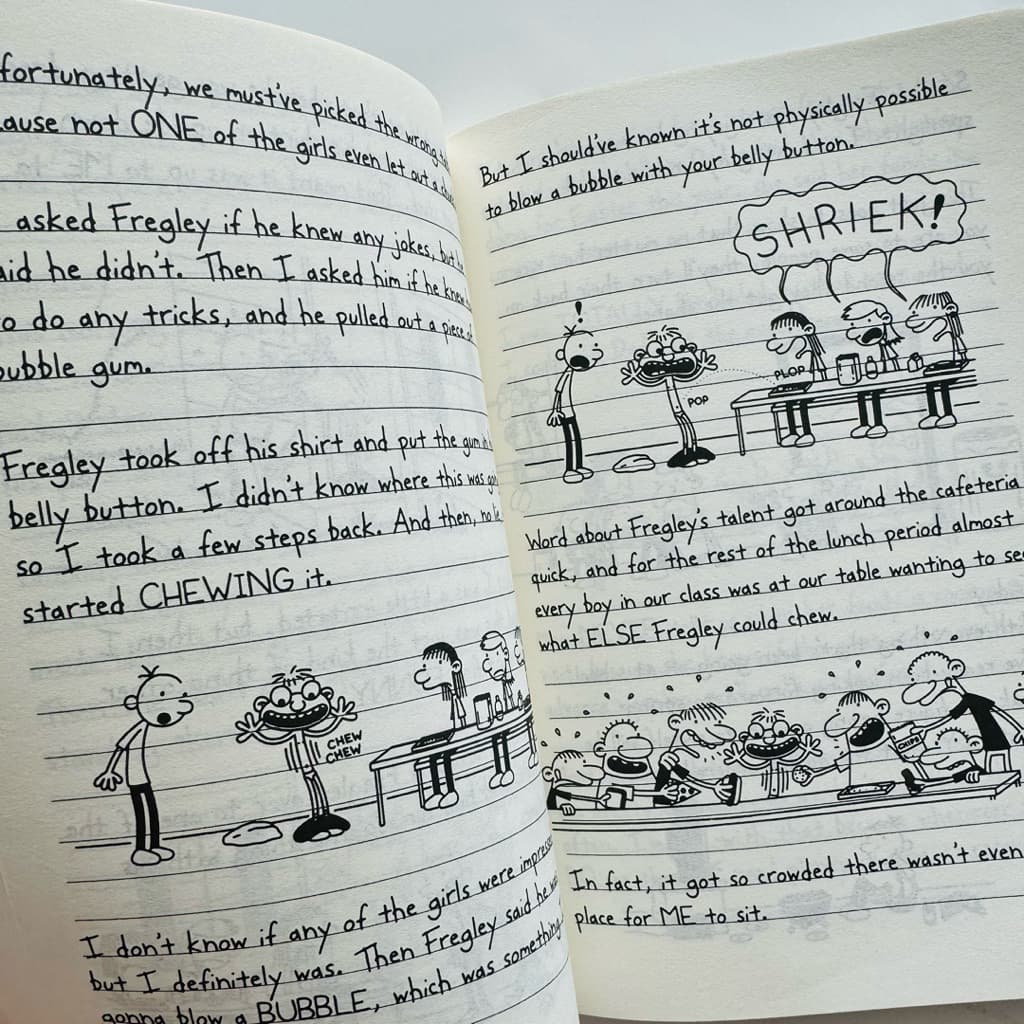 fortunately, we must've picked the wrong
ause not ONE of the girls even let out a
asked Fregley if he knew any jokes, but
aid he didn't. Then I asked him if he knew
o do any tricks, and he pulled out a piece of
ubble gum.
Fregley took off his shirt and put the gum in
belly button. I didn't know where this was
so I took a few steps back. And then, no
started CHEWING it.
CHEW
CHEW
I don't know if any of the girls were impresse
but I definitely was. Then Fregley said he
gonna blow a BUBBLE, which was something
But I should've known it's not physically possible
to blow a bubble with your belly button.
SHRIEK!
!
PLOP
POP
Word about Fregley's talent got around the cafeteria
quick, and for the rest of the lunch period almost
every boy in our class was at our table wanting to see
what ELSE Fregley could chew.
CHIPS
In fact, it got so crowded there wasn't even
place for ME to sit.